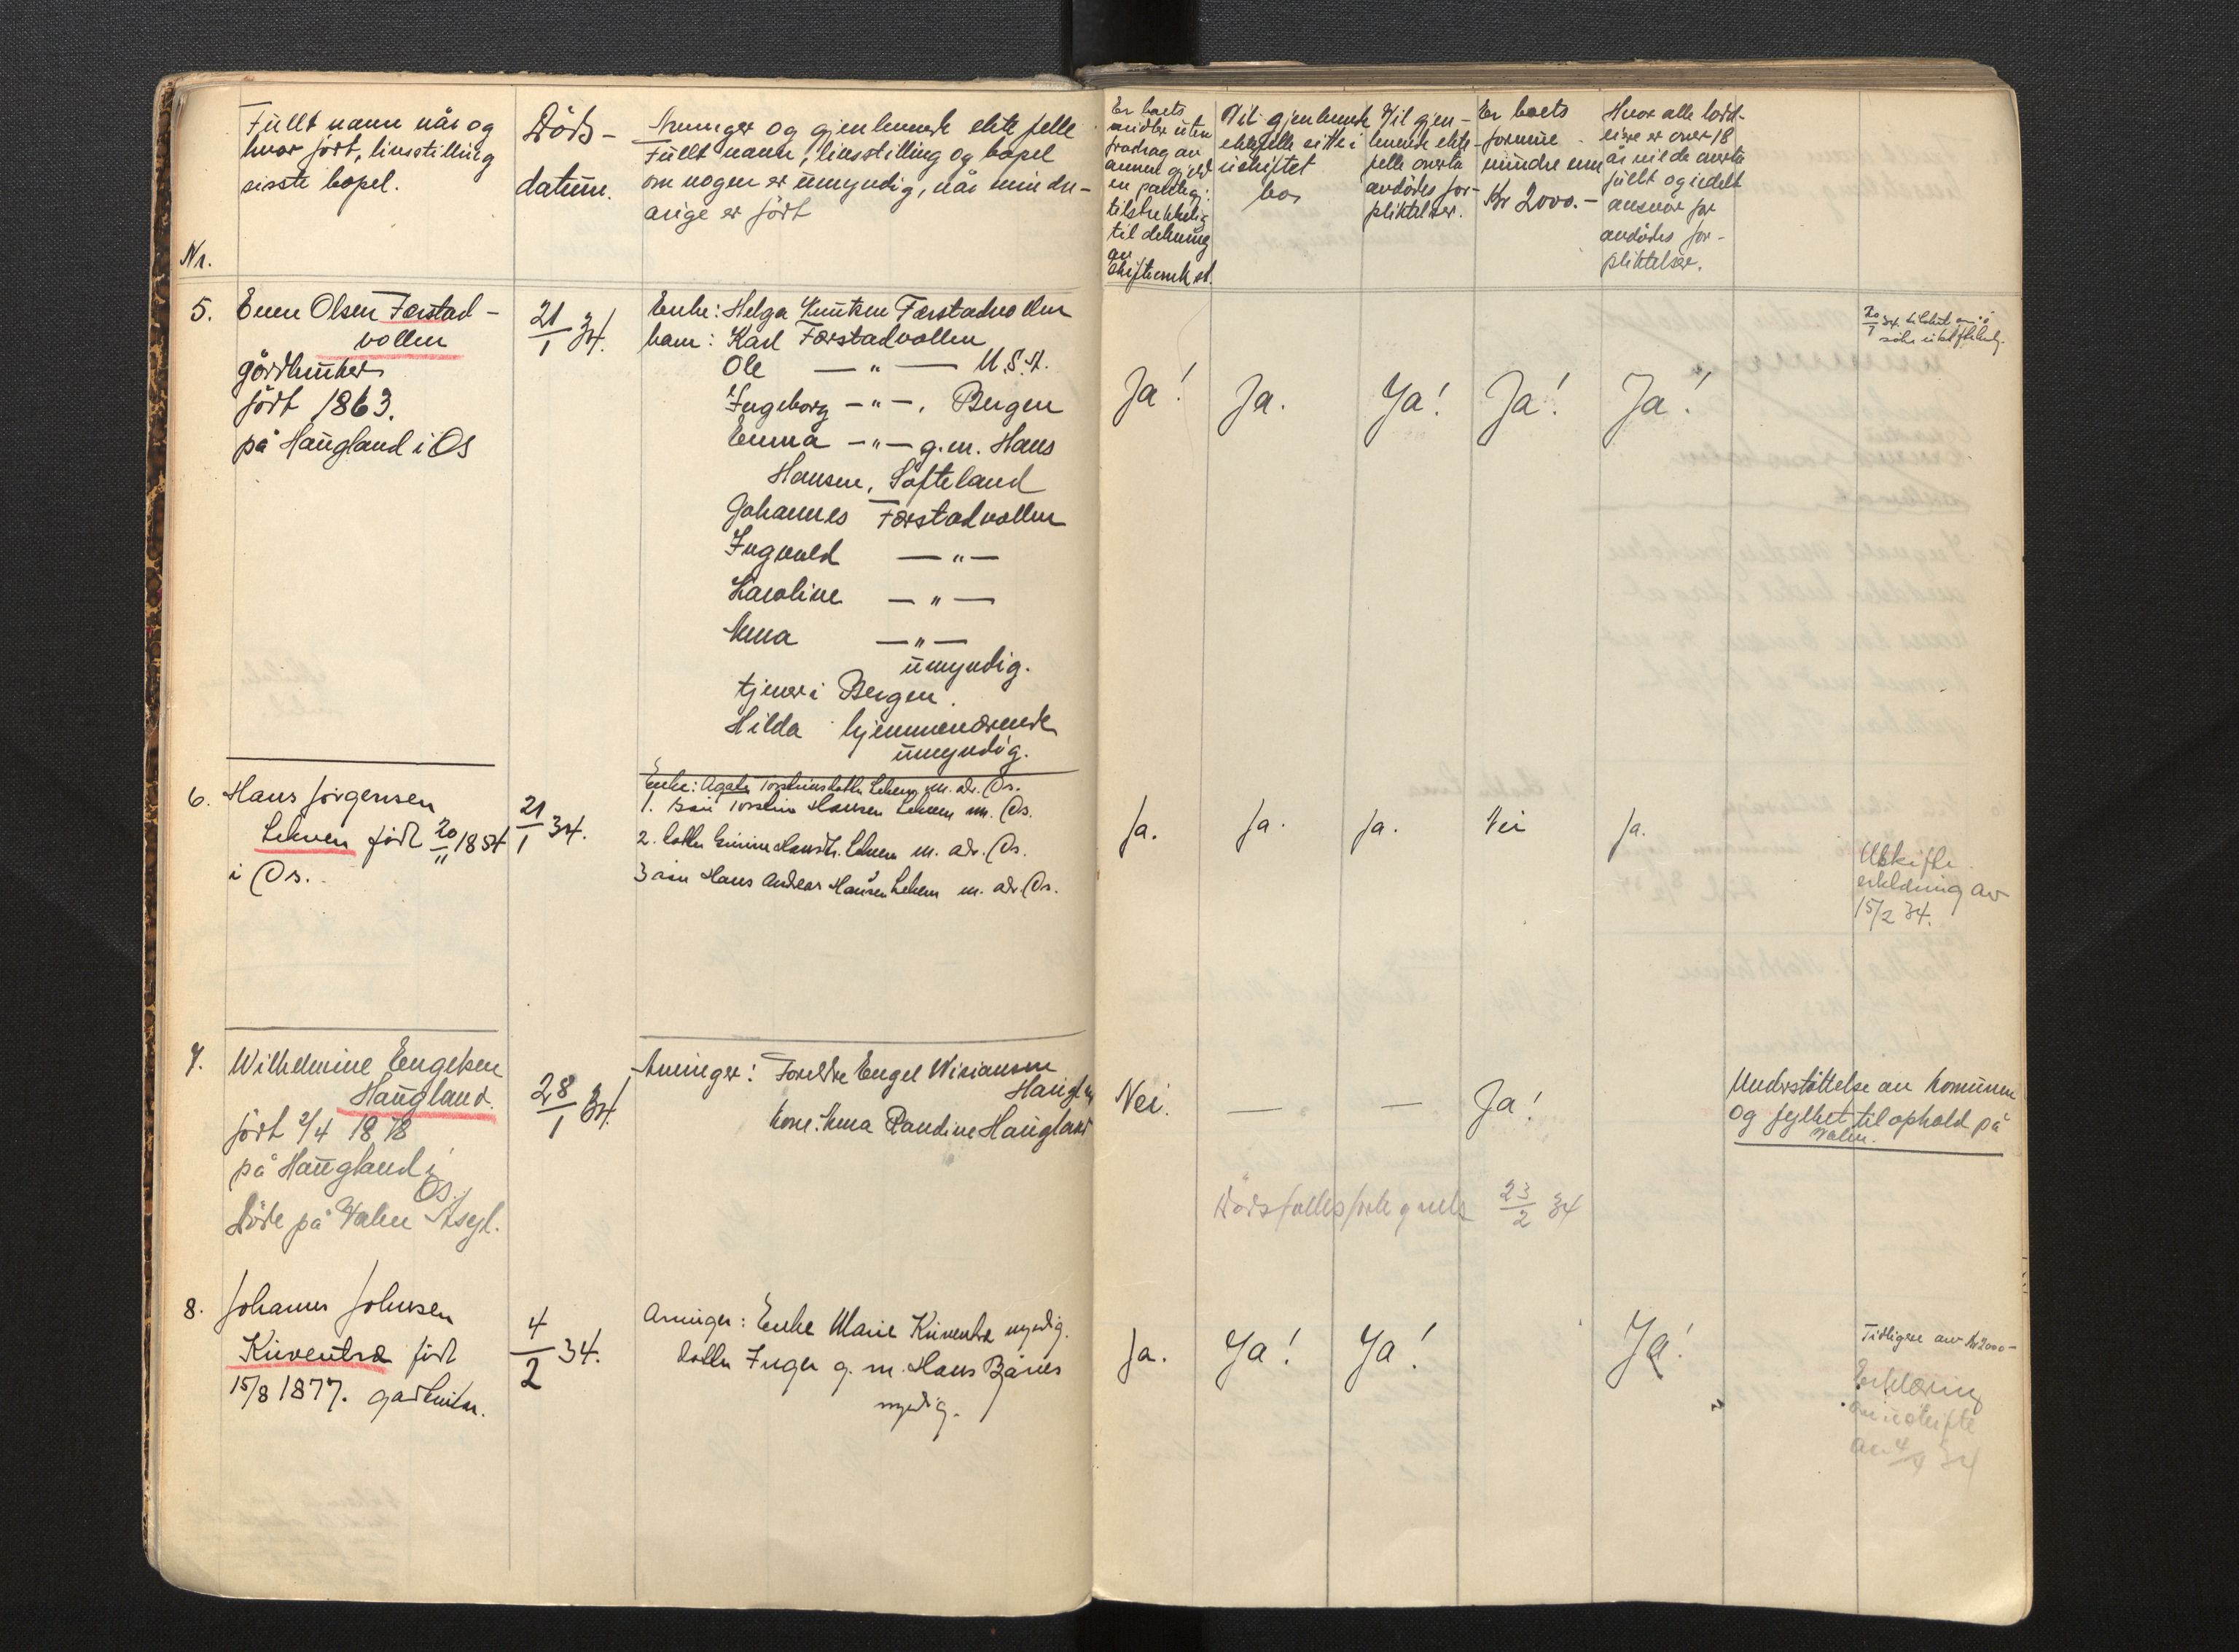 Fullt navn når og
hvor født, livsstilling
sisste bopel.
Nr.
Döds-
datum.
Arvinger og gjenlevende ekte felle
Fullt navn, livsstilling og bopel
om nogen er umyndig, når mindre-
årige er födt
Er boets
midler uten
fradrag av
annen gjeld
en pantelig
tilstrekkelig
til dekning
av
skifteomk st.
Vil gjenlevende
ektefelle sitte i
uskiftet
bo
Vil gjen-
levende ekte-
felle overta
avdödes for-
pliktelser.
Er boets
formue
mindre enn
Kr 2000.-
Hvor alle lodd-
eiere er over 18
år vil de overta
fullt og udelt
ansvar for
avdödes for-
pliktelser.
5. Even Olsen Færstad-
vollen
gårdbruker
född 1863.
på Haugland i Os
21/1 34.
Enke: Helga Knutsen Færstadvollen
barn: Karl Færstadvollen
Ole — " — U.S.A.
Ingeborg — " —, Bergen
Emma — " — g.m. Hans
Hansen, Söfteland
Johannes Færstadvollen
Ingvald — " —
Karoline — " —
Anna — " —
umyndig.
tjener i Bergen.
Hilda hjemmeværende
umyndig.
Ja! Ja. Ja! Ja! Ja!
6. Hans Jörgensen
Lekven född 20/11 1854
i Os.
21/1 34.
Enke: Agate Lekven m. adr. Os.
1. Hansen Lekven m. Os.
2. Lekven m. adr. Os.
3 sön Hans Andreas Hansen Lekven m. adr. Os.
Ja. Ja. Ja. Nei Ja.
Uskifte
erklæring av
15/2 34.
7. Wilhelmine Engelsen
Haugland.
född 2/4 1878
på Haugland i
Os.
döde på Valen Asyl.
28/1 34.
Arvinger: Foreldre Engel
Haugland
kone Anna Randine Haugland
Nei. — — Ja!
Understöttelse av kommune
og fylket til ophold på
Valen.
Dödsfallsfortegnelse 23/2 34
8. Johannes Johnsen
Kuventræ född
15/8 1877. gardbruker.
4/2 34.
Arvinger: Enke Marie Kuventræ myndig.
datter Inga g. m. Hans Bjånes
myndig.
Ja. Ja! Ja! Ja!
Tidligere av kr 2000-
Erklæring
om uskifte
av 4/4 34